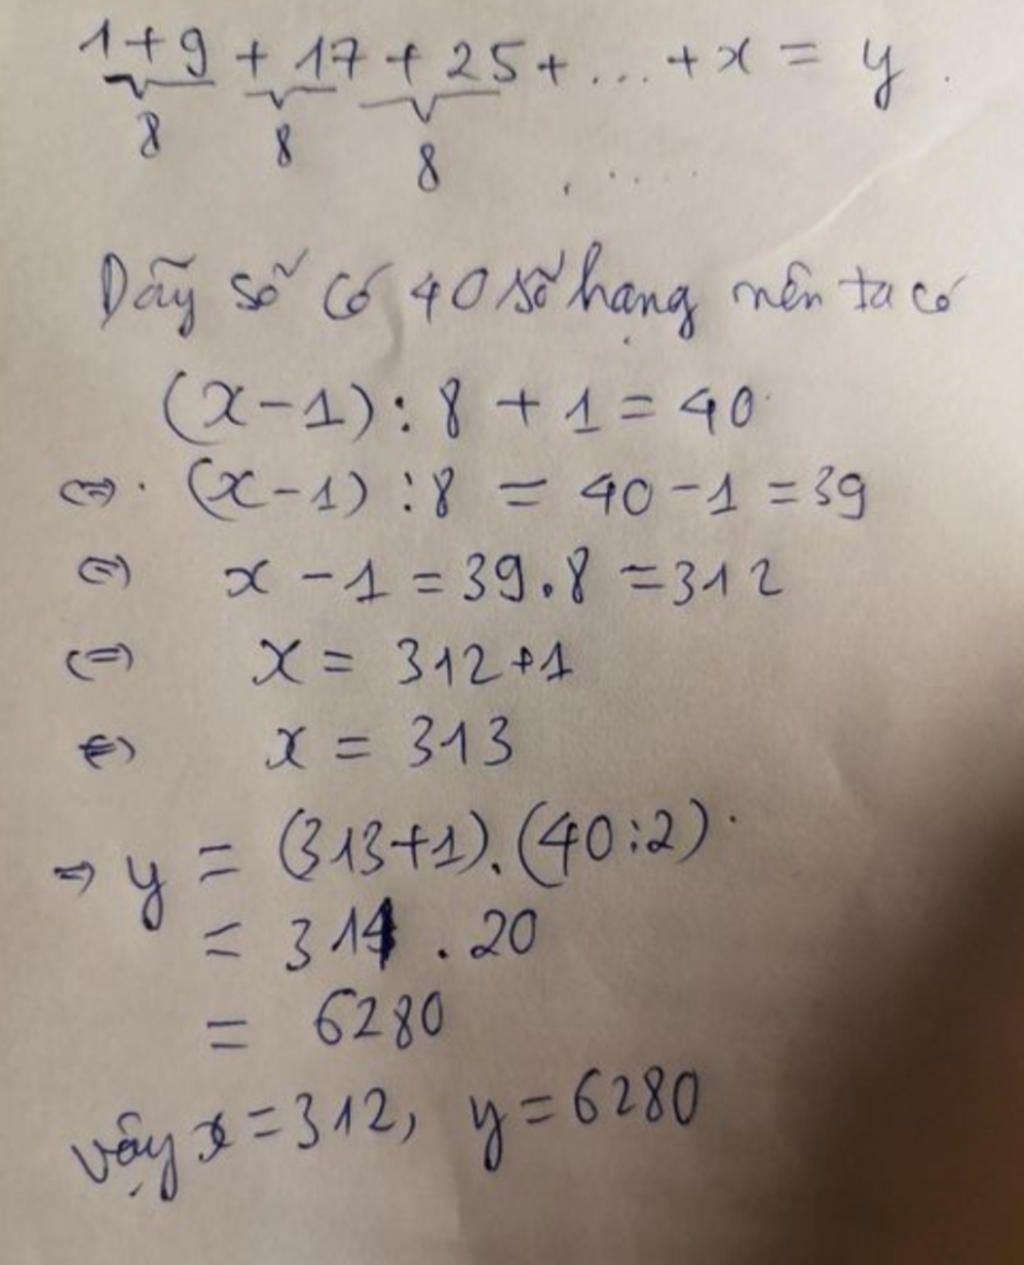 1 + 9 + 17 + 25 + ... + x = y
8 8 8 .....
Dãy số có 40 số hạng nên ta có
(x - 1) : 8 + 1 = 40
⇔ (x - 1) : 8 = 40 - 1 = 39
⇔ x - 1 = 39 . 8 = 312
⇔ x = 312 + 1
⇔ x = 313
⇒ y = (313 + 1) . (40 : 2)
= 314 . 20
= 6280
vậy x = 312, y = 6280